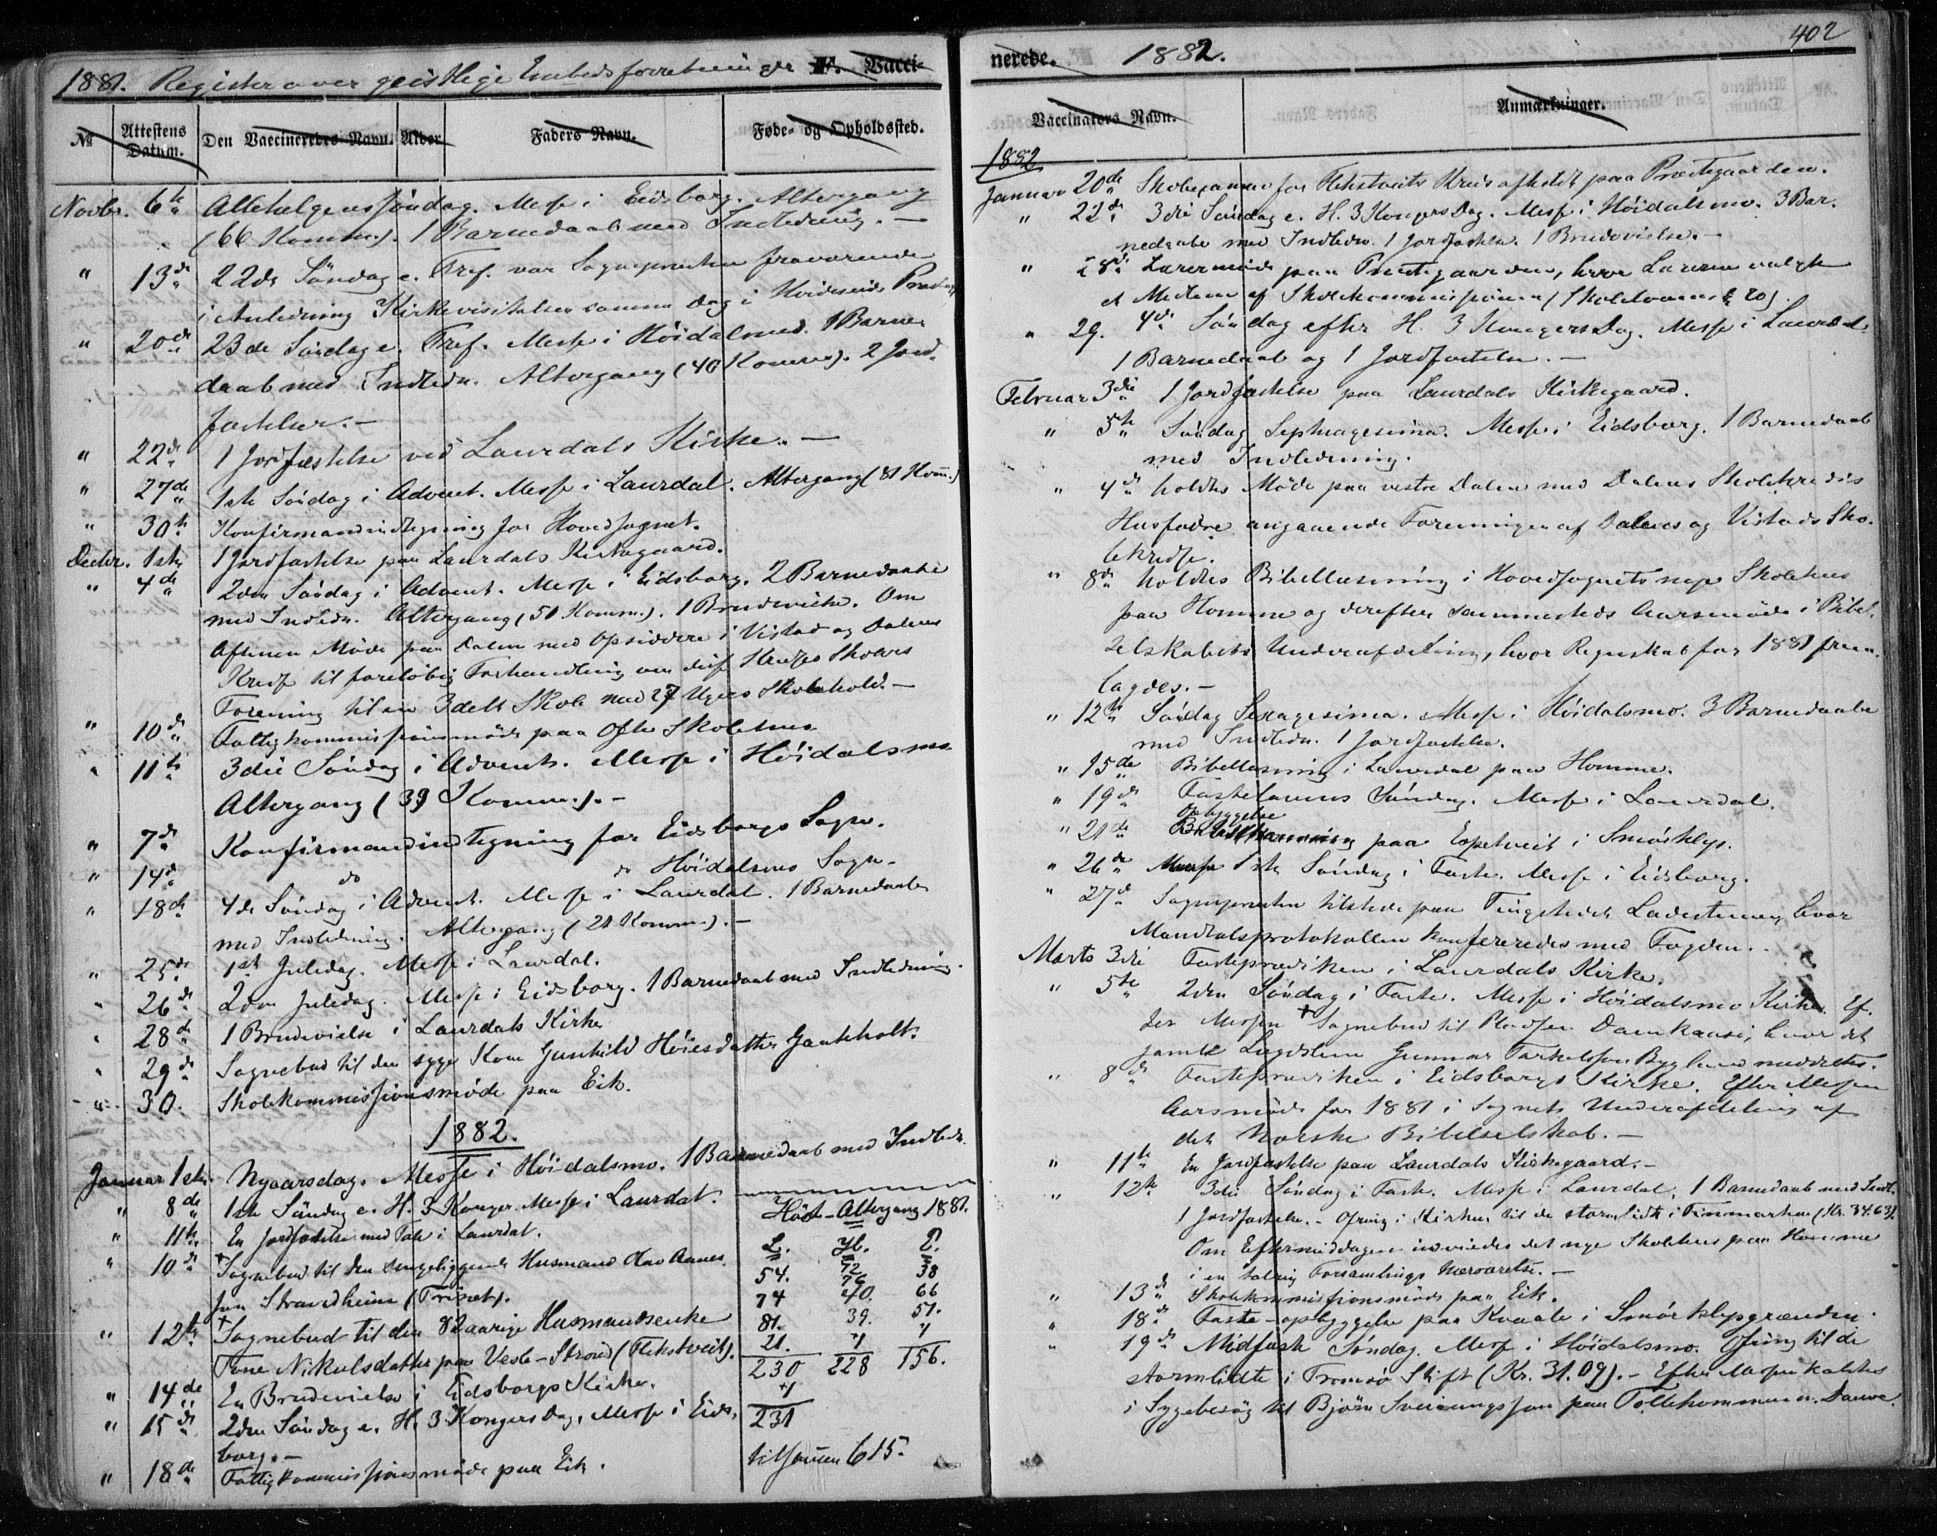 1881. Register over geistlige Embedsforretninger F. Vacci-
№ Attestens Datum. Den Vaccineredes Navn. Alder. Faders Navn. Føde- og Opholdssted.
Novbr. 6te Allehelgenssöndag. Messe i Eidsborg. Altergang
(66 Komm.). 1 Barnedaab med Indledning. —
" 13de 22de Söndag e. Tref. var Sognepresten fraværende
i Anledning Kirkevisitatsen samme Dag i Hvideseids
" 20de 23de Söndag e. Tref. Messe i Höidalsmo. 1 Barne-
daab med Indledn. Altergang (40 Komm.). 2 Jord-
fæstelser. —
" 22de 1 Jordfæstelse ved Laurdals Kirke. —
" 27de 1ste Söndag i Advent. Messe i Laurdal. Altergang (81 Komm.)
" 30te Konfirmandindtegning for Hovedsognet.
Decbr. 1ste 1 Jordfæstelse paa Laurdals Kirkegaard.
" 4de 2den Söndag i Advent. Messe i Eidsborg. 2 Barnedaabe
med Indledn. Altergang (51 Komm.). 1 Brudevielse. Om
Aftenen Möde paa Dalen med Opsiddere i Vistad og Dalens
Kredse til foreløbig Forhandling om disse Kredses Skolers
Forening til en 3delt Skole med 27 Ugers Skolehold. —
" 10de Fattigkommissionsmöde paa Ofte Skolehus
" 11te 3die Söndag i Advent. Messe i Höidalsmo.
Altergang (39 Komm.). —
" 7de Konfirmandindtegning for Eidsborgs Sogn.
" 14de do do Höidalsmo Sogn.
" 18de 4de Söndag i Advent. Messe i Laurdal. 1 Barnedaab
med Indledning. Altergang (21 Komm.). —
" 25de 1ste Juledag. Messe i Laurdal.
" 26de 2den Juledag. Messe i Eidsborg. 1 Barnedaab med Indledning.
" 28de 1 Brudevielse i Laurdals Kirke
" 29de Sognebud til den syge Kone Gunhild Höiesdatter
" 30. Skolekommissionsmöde paa Eik.
1882.
Januar 1ste Nyaarsdag. Messe i Höidalsmo. 1 Barnedaab med Indledn.
" 8de 1ste Söndag e. H. 3 Konger. Messe i Laurdal.
" 11te En Jordfæstelse med Tale i Laurdal.
" 10de + Sognebud til den sengeliggende Husmand
paa
" 12te + Sognebud til den 82aarige Husmandsenke
Tone Nikulsdatter paa Vesle-Stroud (Flekstveit).
" 14de En Brudevielse i Eidsborgs Kirke.
" 15de 2den Söndag e. H. 3 Kongers Dag. Messe i Eids-
borg. —
" 18de Fattigkommissionsmöde paa Eik.
Höst-Altergang 1881.
L. H. E.
54. 72 38
74 76 66
81. 40. 51.
21. 39. "
230 228 156.
+1
231
tilsammen 615.
nerede. 1882. 402
Vaccinators Navn. Anmærkninger.
1882
Januar 20de Skoleexamen for Flekstveits Kreds afholdt paa Præstegaarden.
" 22de 3die Söndag e. H. 3 Kongers Dag. Messe i Höidalsmo. 3 Bar-
nedaabe med Indledn. 1 Jordfæstelse. 1 Brudevielse. —
" 28de Lærermöde paa Præstegaarden, hvor Lærerne valgte
et Medlem af Skolekommissionen (Skoleloven § 20).
" 29. 4de Söndag efter H. 3 Kongers Dag. Messe i Laurdal.
1 Barnedaab og 1 Jordfæstelse. —
Februar 3die 1 Jordfæstelse paa Laurdals Kirkegaard.
" 5te Söndag Septuagesima. Messe i Eidsborg. 1 Barnedaab
med Indledning.
" 4de holdtes Möde paa vestre Dalen med Dalens Skolekredses
Husfædre angaaende Foreningen af Dalens og Vistads Sko-
lekredse.
" 8de holdtes Bibellæsning i Hovedsognets nye Skolehus
paa Homme og derefter sammesteds Aarsmöde i Bibel-
selskabets Underafdeling, hvor Regnskab for 1881 frem-
lagdes. —
" 12te Söndag Sexagesima. Messe i Höidalsmo. 3 Barnedaabe
med Indledn. 1 Jordfæstelse.
" 15de Bibellæsning i Laurdal paa Homme.
" 19de Fastelavns Söndag. Messe i Laurdal.
Opbyggelse
" 21de paa Espetveit i Smörklep.
" 26de 1ste Söndag i Faste. Messe i Eidsborg.
" 27de Sognepresten tilstede paa Tingstedet Ladestenen, hvor
Mandtalsprotokollen konfereredes med Fogden.
Marts 3die Fasteprædiken i Laurdals Kirke.
" 5te 2den Söndag i Faste. Messe i Höidalsmo Kirke. Ef-
ter Messen + Sognebud til Pladsen hvor det
gamle Lægdslem Gunnar meddeltes.
" 8de Fasteprædiken i Eidsborgs Kirke. Efter Messen
Aarsmöde for 1881 i Sognets Underafdeling af
det Norske Bibelselskab. —
" 11te En Jordfæstelse paa Laurdals Kirkegaard. —
" 12te 3die Söndag i Faste. Messe i Laurdal. 1 Barnedaab med Indl.
1 Jordfæstelse. — Ofring i Kirken til de stormlidte i Finmarken (Kr. 34.63).
Om Eftermiddagen indviedes det nye Skolehus paa Homme
i en talrig Forsamlings Nærværelse. —
" 13de Skolekommissionsmöde paa Eik.
" 18de Faste-opbyggelse paa Kvaale i Smörklepgrænden.
" 19de Midfaste Söndag. Messe i Höidalsmo. Ofring til de
stormlidte i Tromsö Stift (Kr. 31.09). — Efter Messen kaldtes
i Sygebesög til Björn Sveinungssön paa